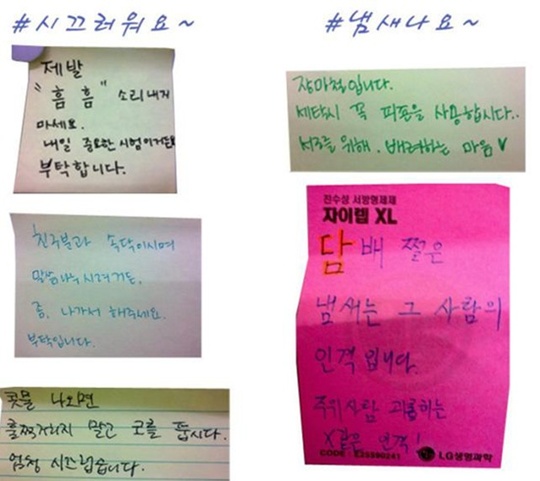 #시끄러워요~
제발
"흠 흠" 소리내지
마세요.
내일 중요한 시험이거든요
부탁합니다.
친구분과 속닥이시며
말씀나누시려거든,
좀, 나가서 해주세요.
부탁입니다.
콧물 나오면
훌쩍거리지 말고 코를 풉시다.
엄청 시끄럽습니다.
#냄새나요~
장마철입니다.
세탁시 꼭 피죤을 사용합시다..
서로를 위해. 배려하는 마음♥
진수상 서방형제제
자이렙 XL
담배 쩔은
냄새는 그 사람의
인격입니다.
주위사람 괴롭히는
X같은 인격!
LG생명과학